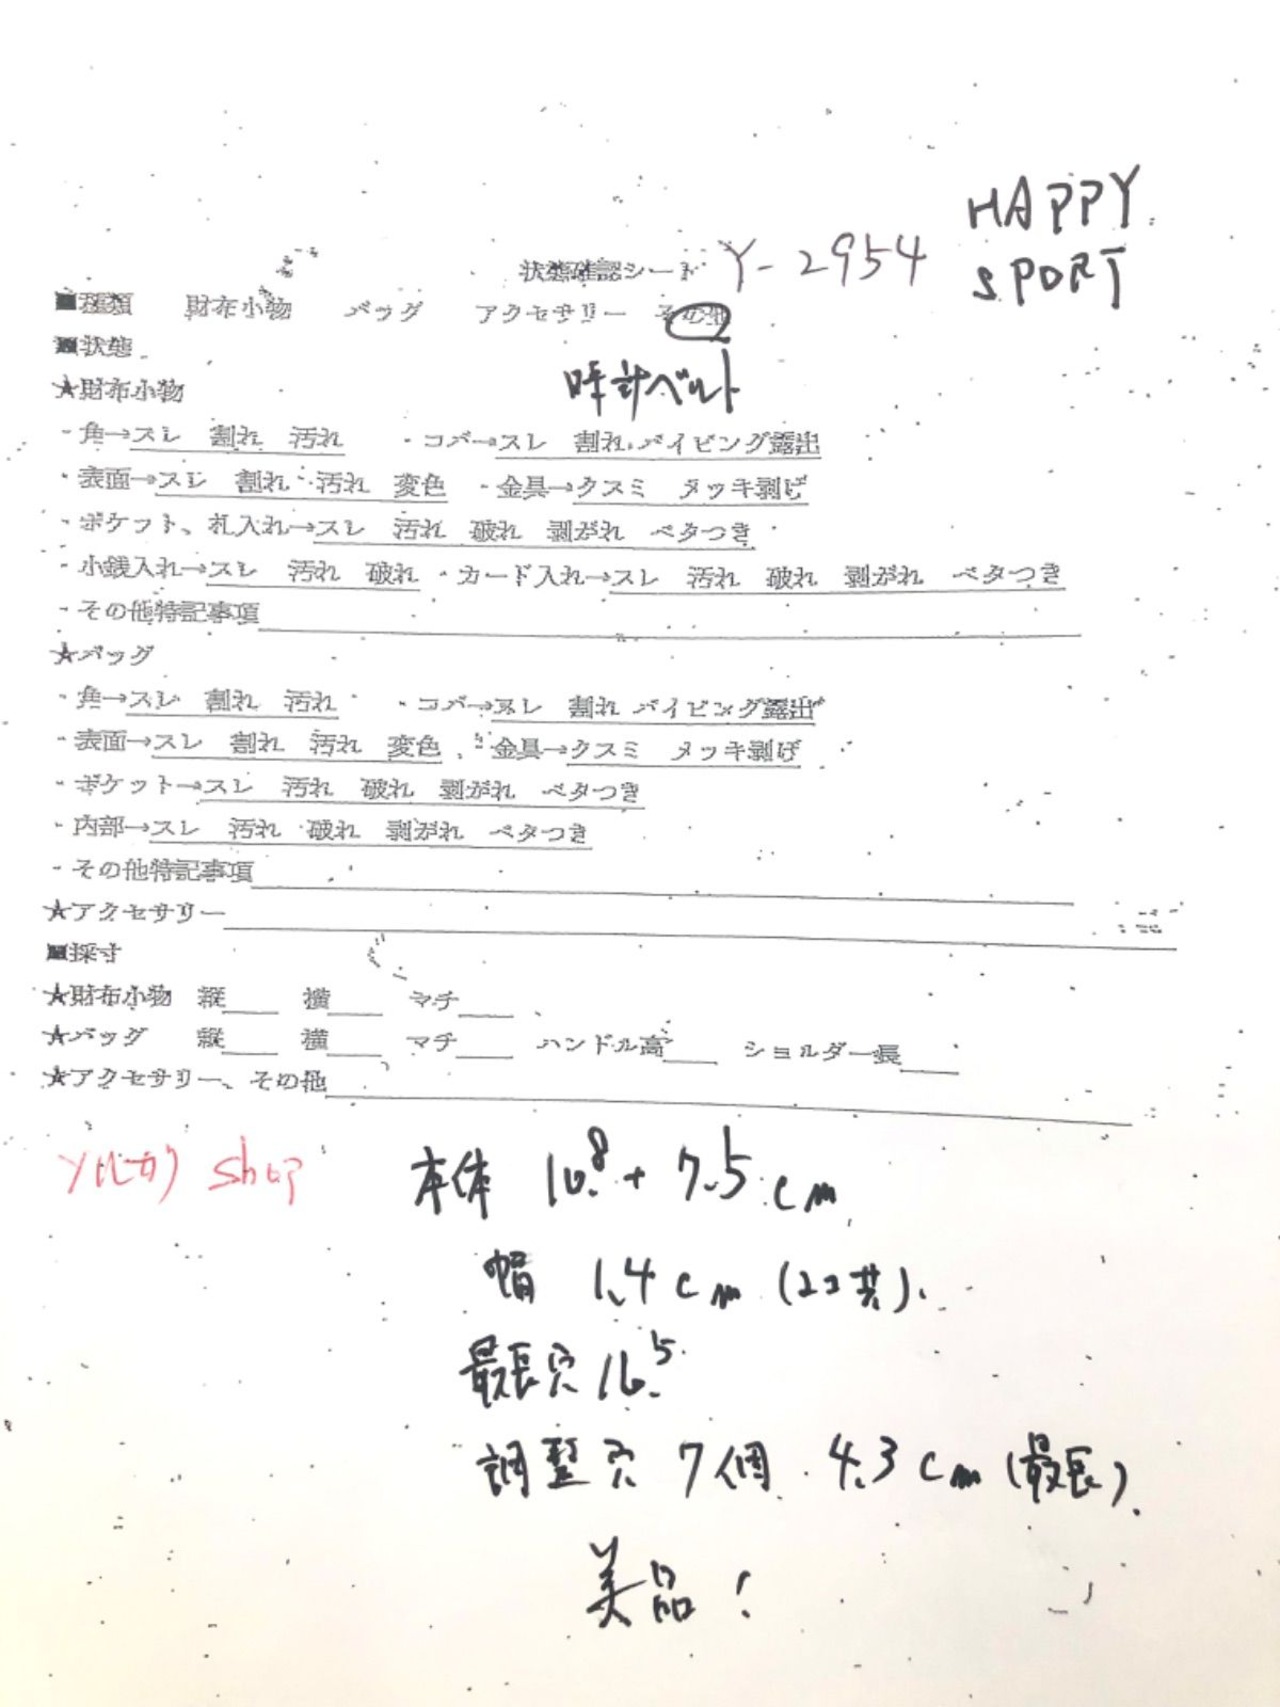 HAPPY
SPORT
状態確認シート Y-2954
■種類 財布小物 バッグ アクセサリー その他
■状態
時計ベルト
★財布小物
・角→スレ 割れ 汚れ ・コバ→スレ 割れ パイピング露出
・表面→スレ 割れ 汚れ 変色 ・金具→クスミ メッキ剥げ
・ポケット、札入れ→スレ 汚れ 破れ 剥がれ ベタつき
・小銭入れ→スレ 汚れ 破れ ・カード入れ→スレ 汚れ 破れ 剥がれ ベタつき
・その他特記事項
★バッグ
・角→スレ 割れ 汚れ ・コバ→スレ 割れ パイピング露出
・表面→スレ 割れ 汚れ 変色 ・金具→クスミ メッキ剥げ
・ポケット→スレ 汚れ 破れ 剥がれ ベタつき
・内部→スレ 汚れ 破れ 剥がれ ベタつき
・その他特記事項
★アクセサリー
■採寸
★財布小物 縦 横 マチ
★バッグ 縦 横 マチ ハンドル高 ショルダー長
★アクセサリー、その他
shop
本体 10.8+7.5cm
幅 1.4cm (2コ共).
最長穴 16.5
調整穴 7個 4.3cm(最長).
美品!